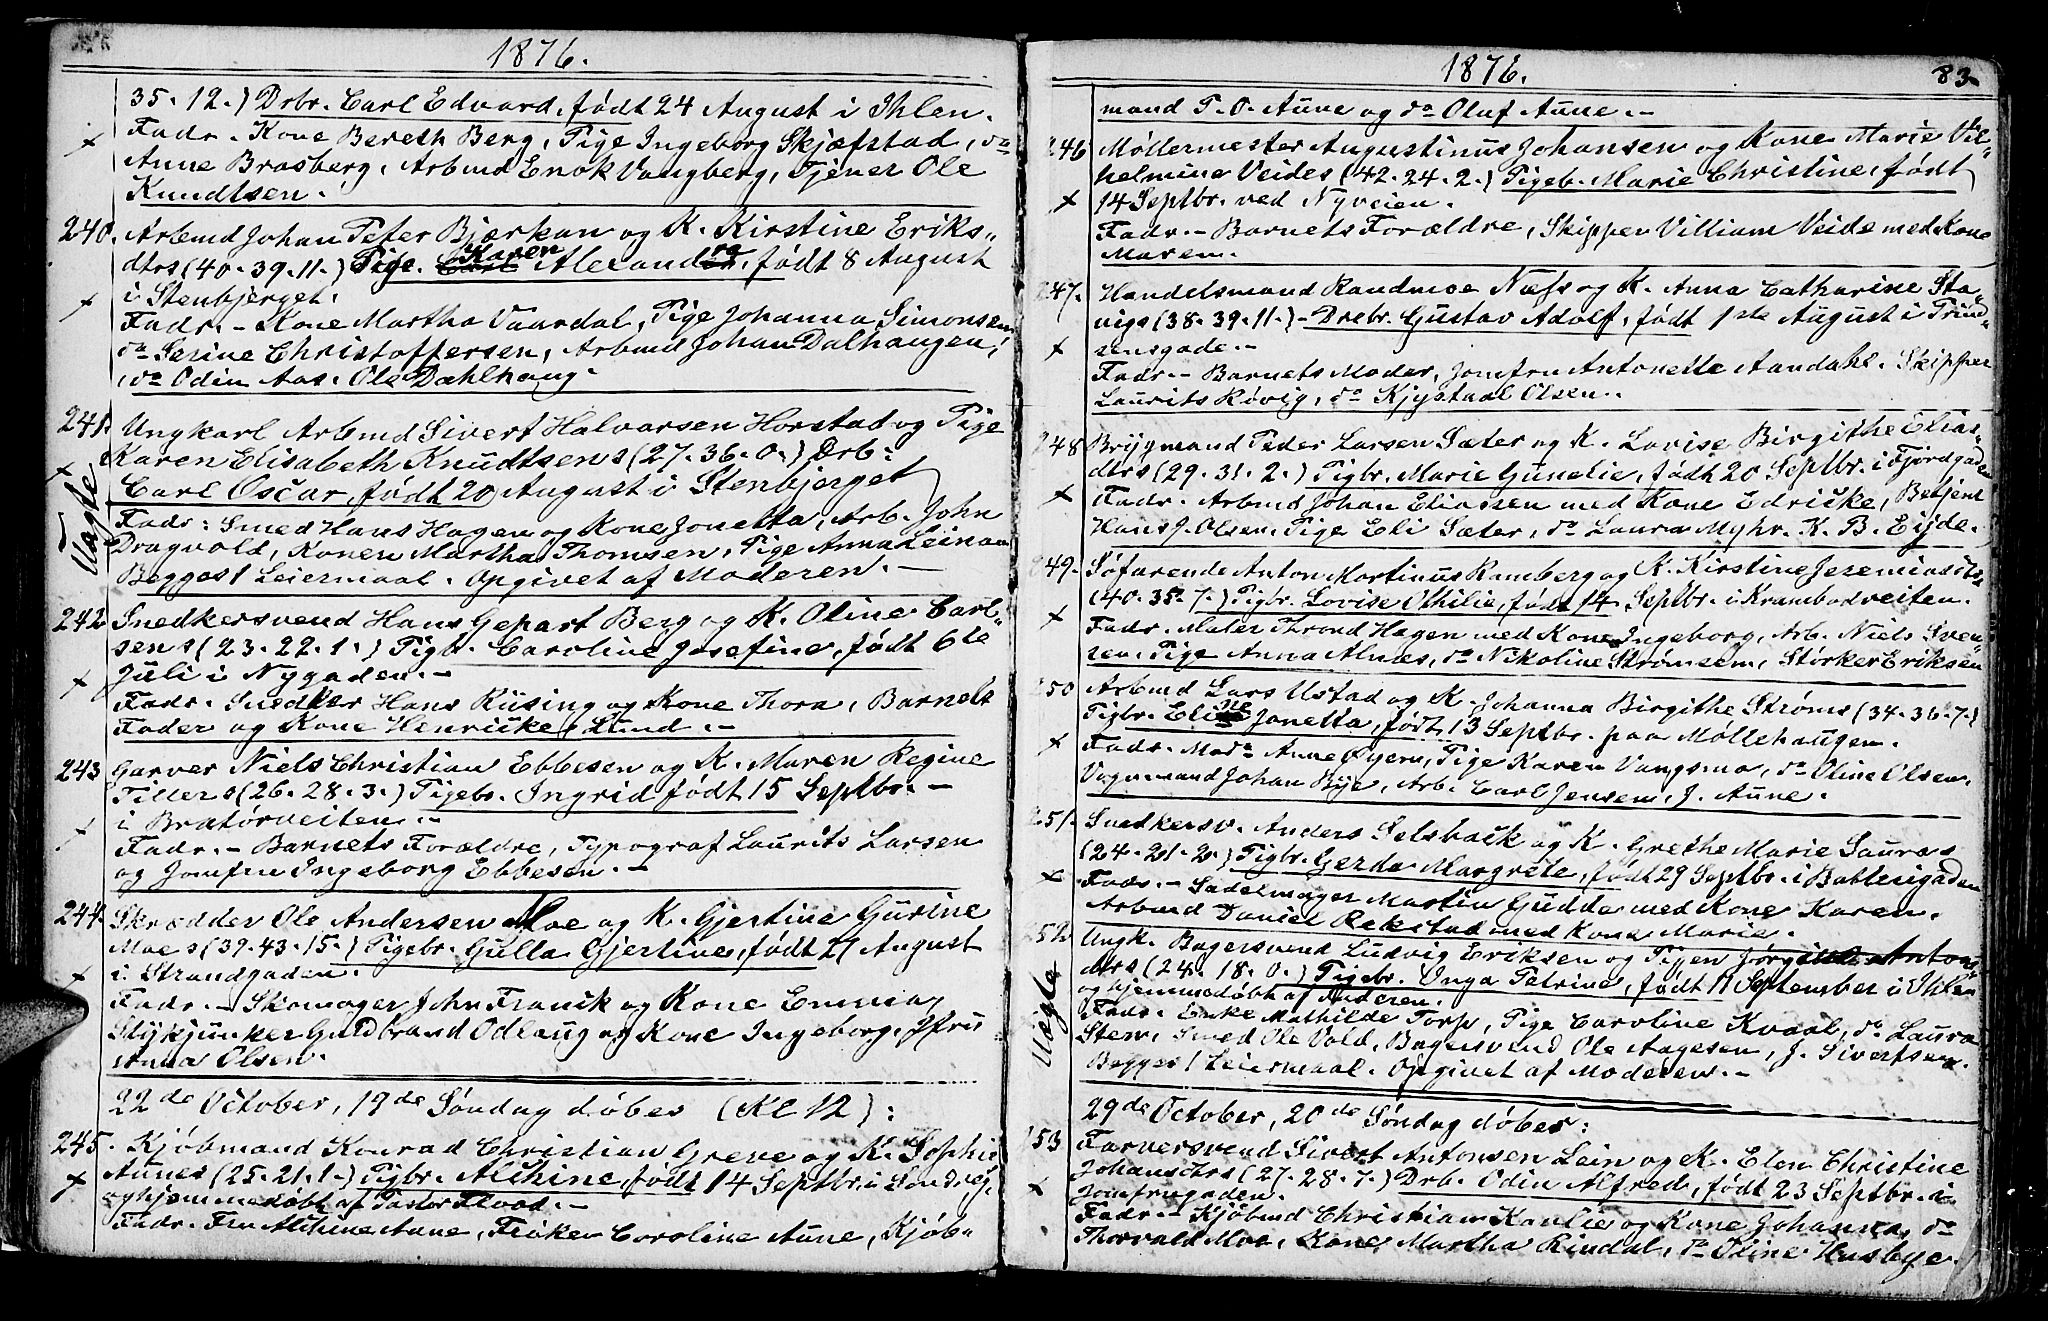 1876.
35.12.) Drbr. Carl Edvard, født 24 August i Ihlen.
Fadr. Kone Bereth Berg, Pige Ingeborg Skjæfstad, do
Anne Brasberg, Arbmd Enok Vangberg, Tjener Ole
Knudtsen.
240. Arbmd Johan Peter Bjærkan og K. Kirstine Eriks-
dtrs (40.39.11.) Pige. Karen Alexandra, født 8 August
i Stenbjerget.
Fadr. - Kone Martha Vaardal, Pige Johanna Simonsen,
do Serine Christoffersen, Arbmd Johan Dalhaugen,
do Odin Aas. Ole Dahlhaug.
241. Ungkarl Arbmd Sivert Halvorsen Horstad og Pige
Karen Elisabeth Knudtsens (27.36.0.) Drb:
Carl Oscar, født 20 August i Stenbjerget
Uægte
Fadr: Smed Hans Hagen og Kone Jonetta, Arb. John
Dragvold, Konen Martha Thomsen, Pige Anna Leinan
Begges 1 Leiermaal. Opgivet af Moderen. -
242 Snedkersvend Hans Gepart Berg og K. Oline Carl-
sens (23.22.1.) Pigb. Caroline Josefine, født 6te
Juli i Nygaden. -
Fadr. Snedker Hans Rüsing og Kone Thora, Barnets
Fader og Kone Henricke Lund. -
243 Garver Niels Christian Ebbesen og K. Maren Regine
Tillers (26.28.3.) Pigebr. Ingrid født 15 Septbr. -
i Bratørveiten. -
Fadr. - Barnets Forældre, Typograf Laurits Larsen
og Jomfru Ingeborg Ebbesen. -
244. Skrædder Ole Andersen Moe og K. Gjertine Gurine
Moes (39.43.15.) Pigebr. Gulla Gjertine, født 21 August
i Strandgaden.
Fadr. - Skomager John Franik og Kone Emma,
Stykjunker Guldbrand Odlaug og Kone Ingeborg, Jfru
Anna Olsen.
22de October, 19de Søndag døbes (Kl 12):
245. Kjøbmand Konrad Christian Greve og K. Sophie
Aunes (25.21.1.) Pigbr. Alchine, født 14 Septbr. i Søndreg.
og hjemmedøbt af Pastor Flood. -
Fadr. Fru Alchine Aune, Frøken Caroline Aune, Kjøb-
1876.
83
mand T. O. Aune og do Oluf Aune. -
246 Møllermester Augustinus Johansen og Kone Marie Vil-
helmine Veides (42.24.2.) Pigeb. Marie Christine, født
14 Septbr. ved Nyveien.
Fadr. - Barnets Forældre, Skipper Villiam Veide med Kone
Maren.
247. Handelsmand Randmoe Næss og K. Anna Catharine Sta-
nigs (38.39.11.) - Drebr. Gustav Adolf, født 1ste August i Trind-
sensgade. -
Fadr. - Barnets Moder, Jomfru Antonette Aandahl. Skipper
Laurits Røvig, do Kjystaal Olsen.
248 Brygmand Peder Larsen Sæter og K. Lovise Birgithe Elias-
dtrs (29.31.2.) Pigbr. Marie Gunelie, født 20 Septbr. i Fjordgaden
Fadr. Arbmd Johan Eliassen med Kone Edricke, Betjent
Hans J. Olsen. Pige Eli Sæter, do Laura Myhr. K. B. Eijde.
249. Søfarende Anton Martinus Ramberg og K. Kirstine Jeremiasdtrs
(40.35.7.) Pigbr. Lovise Othilie, født 14 Septbr. i Krambodveiten.
Fadr. Maler Thrond Hagen med Kone Ingeborg, Arb. Niels Sven-
sen. Pige Anna Alnæs, do Nikoline Strømsem, Størker Eriksen
250 Arbmd Lars Ustad og K. Johanna Birgithe Strøms (34.36.7.)
Pigbr. Eline Jonetta, født 13 Septbr. paa Møllehaugen.
Fadr. Mad. Anne Øyern, Pige Karen Vangsmo, do Oline Olsen,
Vognmand Johan Bye, Arb. Carl Jensen, J. Aune.
251. Snedkersv. Anders Selsbaik og K. Grethe Marie Sauras
(24.21.2.) Pigbr. Gerda Margrete, født 29 Septbr. i Batterigaden
Fadr. - Sadelmager Martin Gudde med Kone Karen.
Arbmd Daniel Rekstad med Kone Marie.
252 Ungk. Bagersvend Ludvig Eriksen og Pigen Jørgine Anton-
dtrs (24.18.0.) Pigebr. Unga Petrine, født 11 September i Ihlen
og hjemmedøbt af Moderen.
Uægte
Fadr. Enke Mathilde Torp, Pige Caroline Kvaal, do Laura
Sten, Smed Ole Vold, Bagersvend Ole Aagesen, J. Sivertsen.
Begges 1 Leiermaal. Opgivet af Moderen. -
29de October, 20de Søndag døbes:
253 Farversvend Sivert Antonsen Lein og K. Elen Christine
Johansdtrs (27.28.7.) Drb. Odin Alfred, født 23 Septbr. i
Jomfrugaden.
Fadr. - Kjøbmd Christian Kaulie og Kone Johanna, do
Thorvald Moe, Kone Martha Rindal, do Oline Husbye.